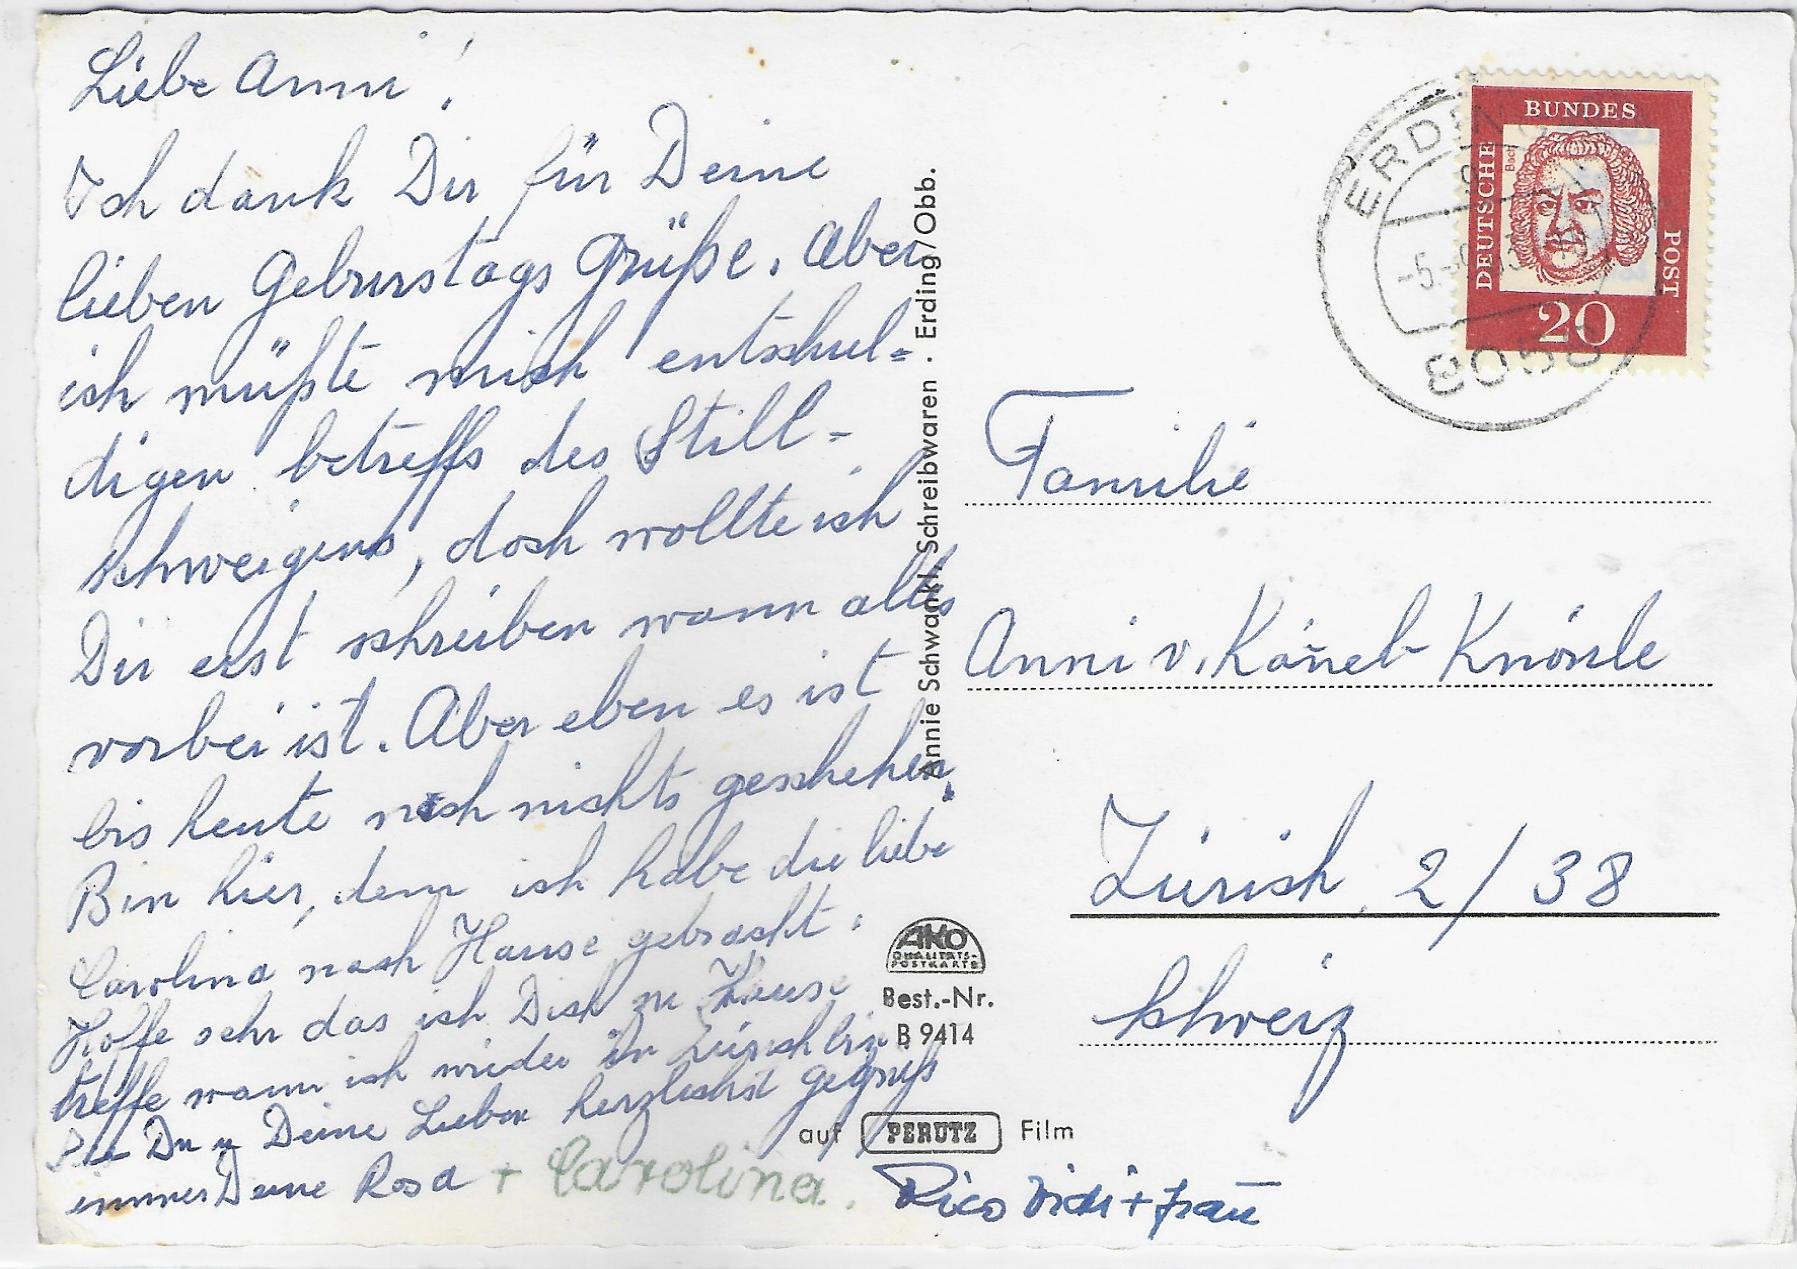 Liebe Anni!
Ich dank Dir für Deine
lieben Geburstags Grüße. Aber
ich müßte mich entschul=
digen betreffs des Still-
schweigens, doch wollte ich
Dir erst schreiben wann alles
vorbei ist. Aber eben es ist
bis heute noch nichts geschehen.
Bin hier, denn ich habe die liebe
Carolina nach Hause gebracht.
Hoffe sehr das ich Dich zu Hause
treffe wann ich wieder in Zürich bin.
Sei Du u Deine Lieben herzlichst gegrüß
immer Deine Rosa + Carolina.
Rico + Frau
Annie Schwankl, Schreibwaren . Erding/Obb.
AKO
QUALITÄTS-
POSTKARTE
Best.-Nr.
B 9414
auf PERUTZ Film
DEUTSCHE BUNDES POST
Bach
20
ERDING
-5.
8058
Familie
Anni v. Känel-Knönle
Zürich 2/38
Schweiz